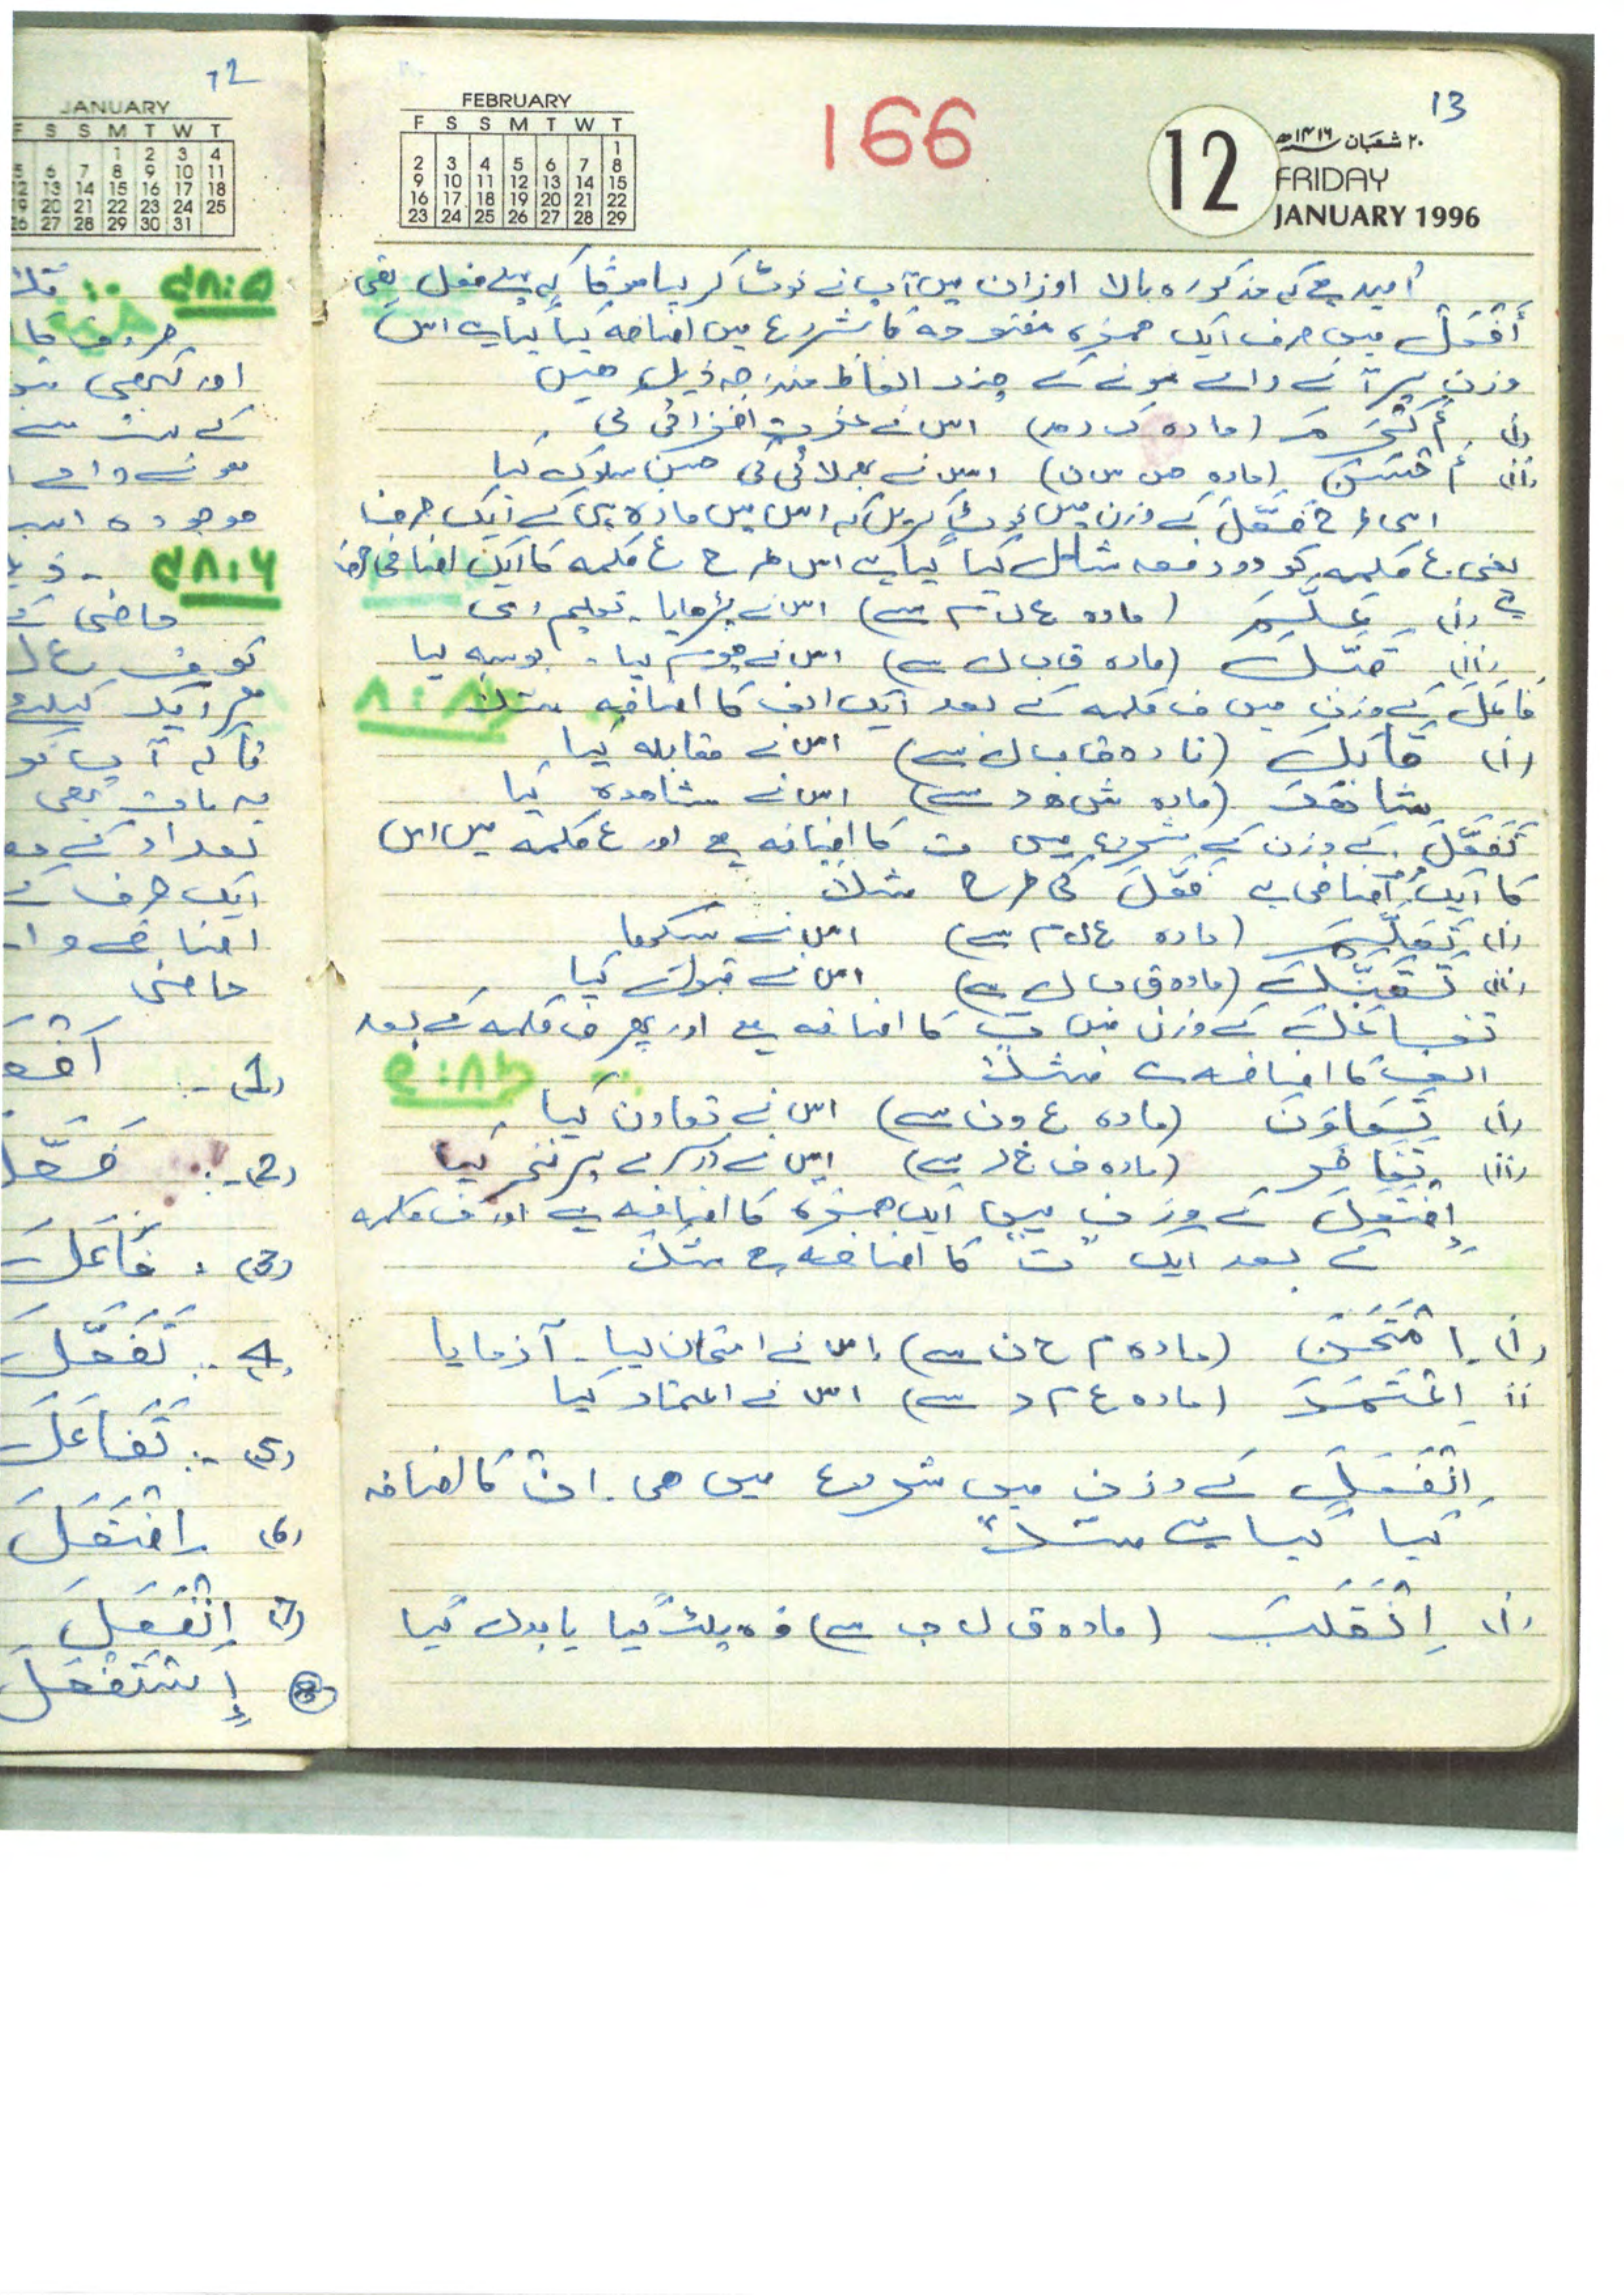 13
166
FEBRUARY
F S S M T W T
1
2 3 4 5 6 7 8
9 10 11 12 13 14 15
16 17 18 19 20 21 22
23 24 25 26 27 28 29
12
۲۰ شعبان ۱۴۱۶ھ
FRIDAY
JANUARY 1996
اُمید ہے کہ مذکورہ بالا اوزان میں آپ نے نوٹ کر لیا ہوگا کہ پہلے فعل یعنی
أَفْعَلَ میں صرف ایک ھمزہ مفتوحہ کا شروع میں اضافہ کیا گیا ہے اس
وزن پر آنے والے ہونے کے چند الفاظ مندرجہ ذیل ھیں
(i) أَكْرَمَ (مادہ ک ر م) اس نے عزت افزائی کی
(ii) أَحْسَنَ (مادہ ح س ن) اس نے بھلائی کی حسن سلوک کیا
اسی طرح فَعَّلَ کے وزن میں نوٹ کریں کہ اس میں مادہ ہی کے ایک حرف
یعنی ع کلمہ کو دو دفعہ شامل کیا گیا ہے اس طرح ع کلمہ کا ایک اضافی حرف
ہے (i) عَلَّمَ (مادہ ع ل م سے) اس نے پڑھایا۔ تعلیم دی
(ii) قَبَّلَ (مادہ ق ب ل سے) اس نے چوم لیا۔ بوسہ لیا
فَاعَلَ کے وزن میں ف کلمہ کے بعد ایک الف کا اضافہ مثلاً ۴۸:۸
(i) قَابَلَ (مادہ ق ب ل سے) اس نے مقابلہ کیا
شَاهَدَ (مادہ ش ہ د سے) اس نے مشاہدہ کیا
تَفَعَّلَ کے وزن کے شروع میں ت کا اضافہ ہے اور ع کلمہ میں اس
کا ایک اضافی ہے فَعَّلَ کی طرح مثلاً
(i) تَعَلَّمَ (مادہ ع ل م سے) اس نے سیکھا
(ii) تَقَبَّلَ (مادہ ق ب ل سے) اس نے قبول کیا
تَفَاعَلَ کے وزن میں ت کا اضافہ ہے اور پھر ف کلمہ کے بعد
الف کا اضافہ ہے مثلاً ۴۸:۹
(i) تَعَاوَنَ (مادہ ع و ن سے) اس نے تعاون کیا
(ii) تَفَاخَرَ (مادہ ف خ ر سے) اس نے دوسرے پر فخر کیا
اِفْتَعَلَ کے وزن میں ایک ھمزہ کا اضافہ ہے اور ف کلمہ
کے بعد ایک "ت" کا اضافہ ہے مثلاً
(i) اِمْتَحَنَ (مادہ م ح ن سے) اس نے امتحان لیا۔ آزمایا
ii اِعْتَمَدَ (مادہ ع م د سے) اس نے اعتماد کیا
اِنْفَعَلَ کے وزن میں شروع میں ھی ۔ ان کا اضافہ
کیا گیا ہے مثلاً
(i) اِنْقَلَبَ (مادہ ق ل ب سے) وہ پلٹ گیا یا بدل گیا
12
JANUARY
F S S M T W T
1 2 3 4
5 6 7 8 9 10 11
12 13 14 15 16 17 18
19 20 21 22 23 24 25
26 27 28 29 30 31
۴۸:۵
حروف کا
اور کبھی
کے بہت سے
ہونے والے
موجودہ
۴۸:۶
ماضی کے
ہر ایک کیلئے
تاکہ آپ کو
یہ بات بھی
تعداد کے
ایک حرف کے
ماضی
(1)
(2) فَعَّلَ
(3) فَاعَلَ
4 تَفَعَّلَ
(5) تَفَاعَلَ
(6) اِفْتَعَلَ
(7) اِنْفَعَلَ
8 اِسْتَفْعَلَ